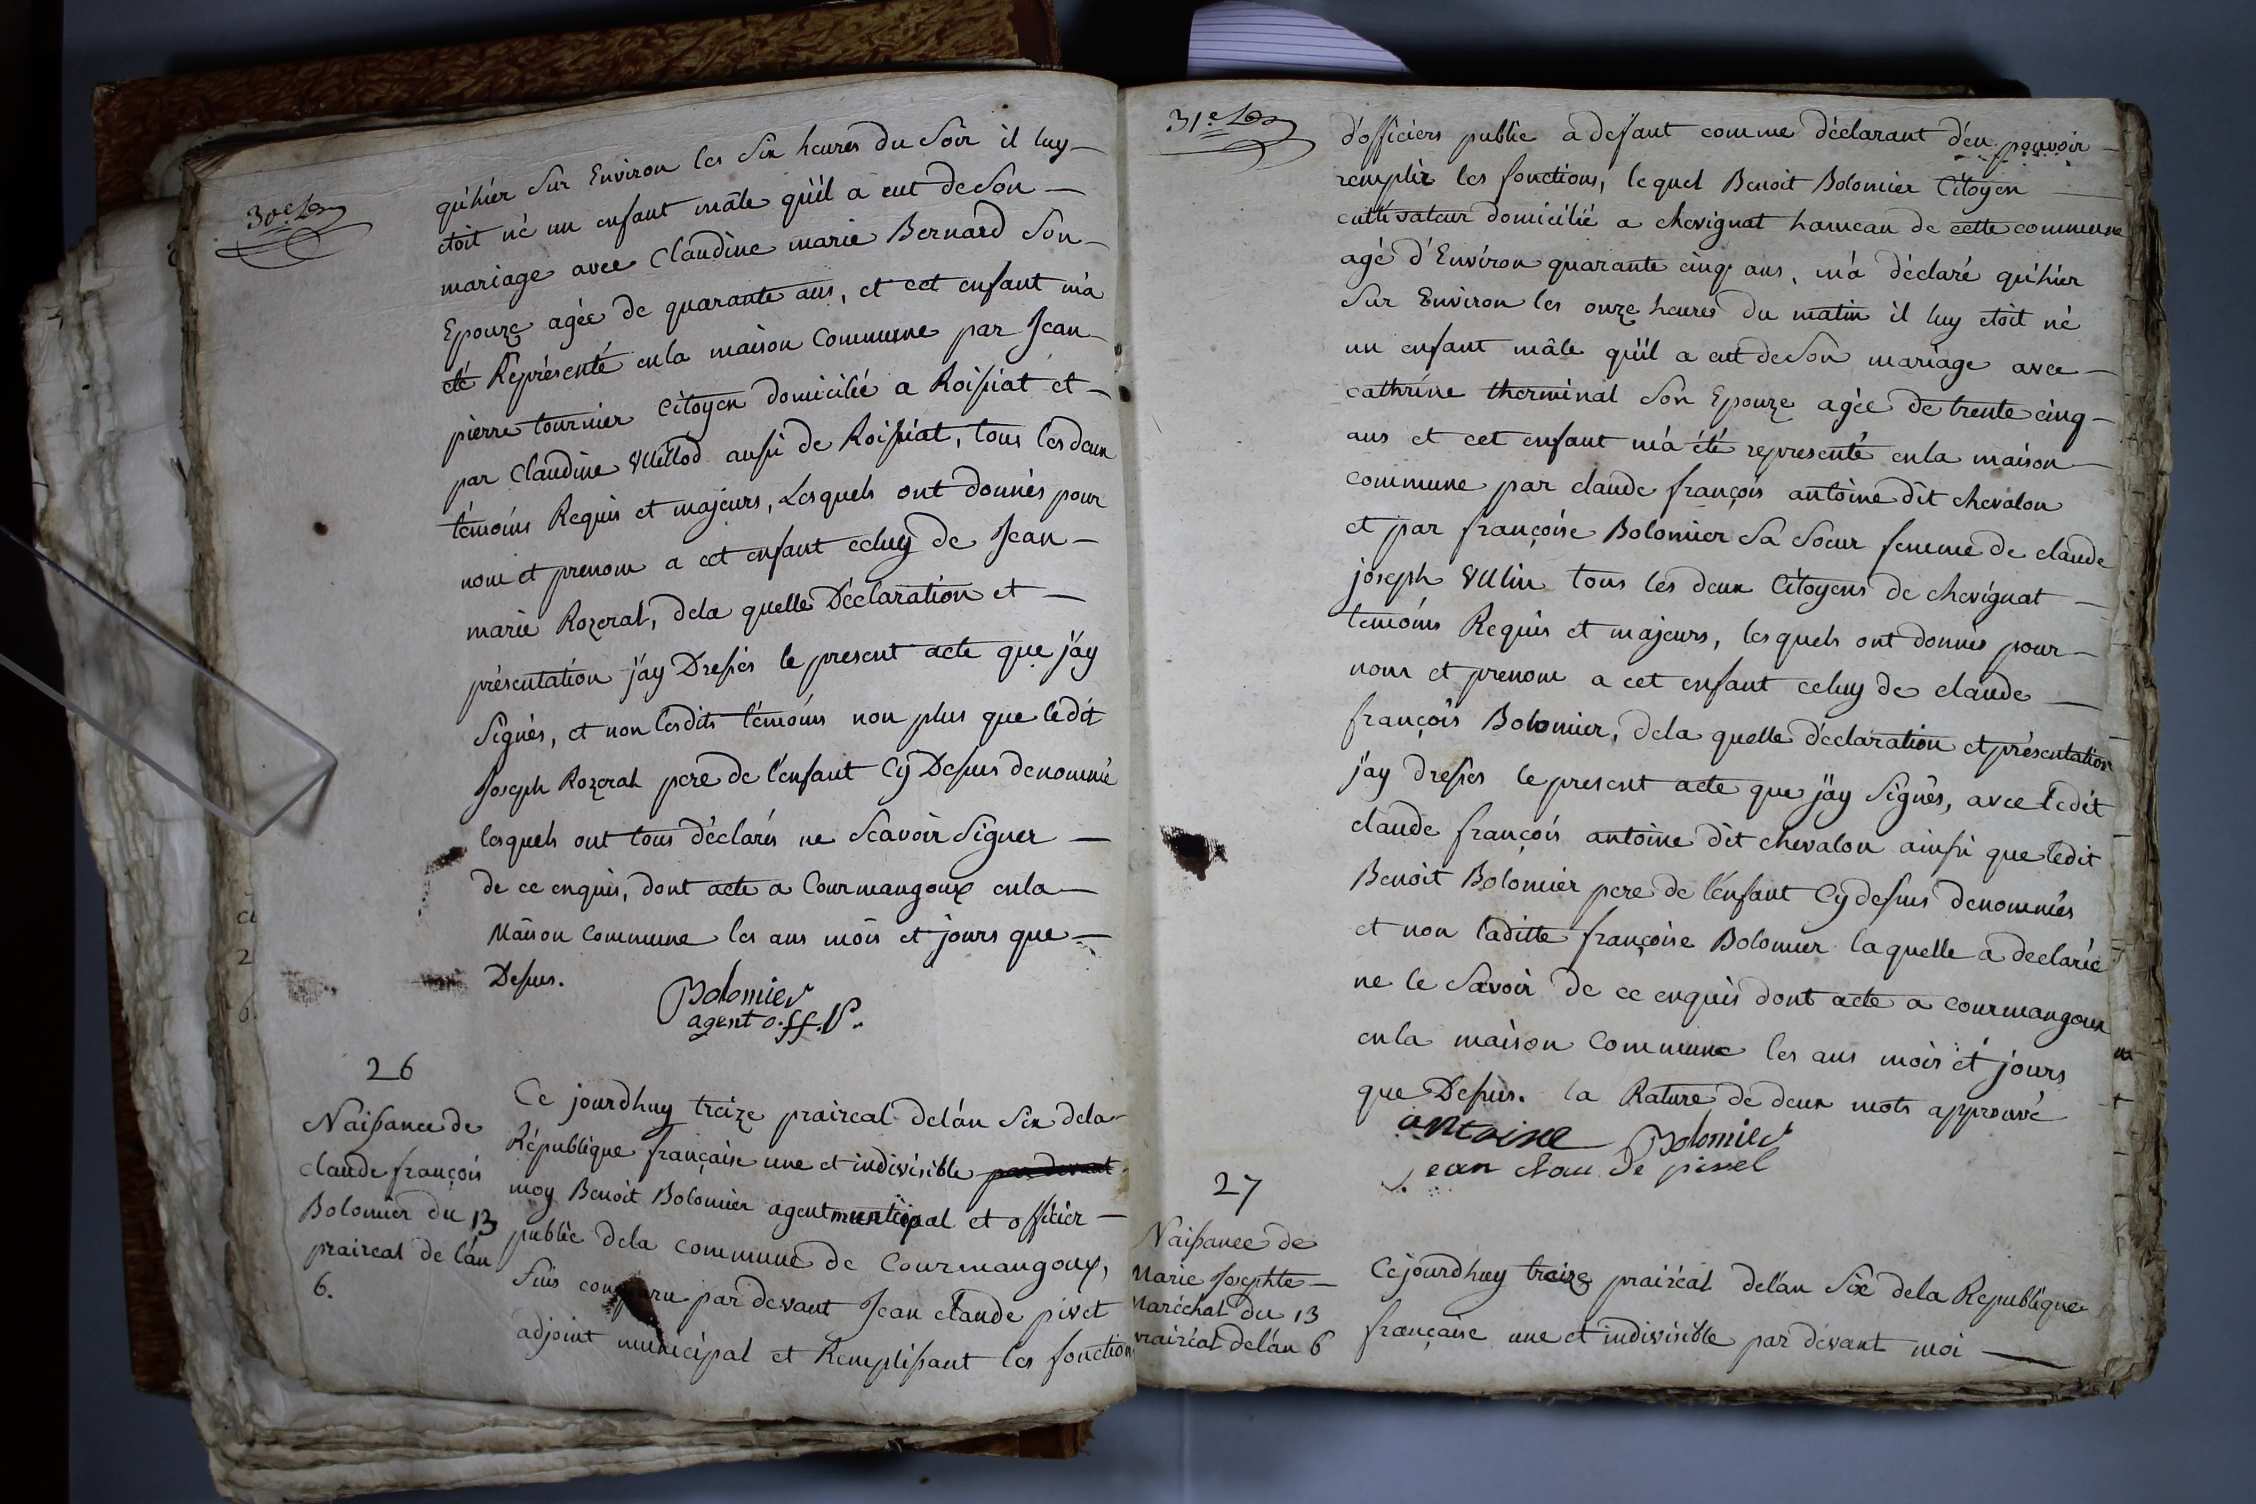 30e
qu'hier sur Environ les six heures du Soir il luy
etoit né un enfant mâle qu'il a eut de Son
mariage avec Claudine marie Bernard Son
Epouze agée de quarante ans, et cet enfant m'a
eté Réprésenté en la maison Commune par Jean
pierre tournier Citoyen domicilié a Roissiat et
par Claudine Vuillod aussi de Roissiat, tous les deux
témoins Requis et majeurs, Lesquels ont donnés pour
nom et prenom a cet enfant celuy de Jean
marie Rozerat, dela quelle Déclaration et
présentation j'ay Dressés le present acte que j'ay
Signés, et non lesdits témoins non plus que ledit
Joseph Rozerat pere de l'enfant Cy Dessus denommé
lesquels ont tous déclarés ne Scavoir Signer
de ce enquis, dont acte a Courmangoux en la
Maison Commune les ans mois et jours que
Dessus.
Bolomier
agent off. P.
26
Naissance de
claude françois
Bolomier du 13
praireal de l'an
6.
Ce jourdhuy treize praireal de l'an Six dela
République française une et indivisible par devant
moy Benoit Bolomier agent municipal et officier
public dela commune de Courmangoux,
Suis comparu par devant Jean claude pivet
adjoint municipal et Remplissant les fonction
31e
d'officiers public a defaut comme déclarant d'en pouvoir
remplir les fonctions, lequel Benoit Bolomier Citoyen
cultivateur domicilié a chevignat hameau de cette commune
agé d'Environ quarante cinq ans, m'a déclaré qu'hier
Sur Environ les onze heures du matin il luy etoit né
un enfant mâle qu'il a eut de Son mariage avec
cathrine therminat Son Epouze agée de trente cinq
ans et cet enfant m'a été representé en la maison
commune par claude françois antoine dit chevalon
et par françoise Bolomier Sa Soeur femme de claude
joseph Vulin tous les deux Citoyens de chevignat
temoins Requis et majeurs, lesquels ont donnés pour
nom et prenom a cet enfant celuy de claude
françois Bolomier, dela quelle déclaration et présentation
j'ay dressés le present acte que j'ay Signés, avec ledit
claude françois antoine dit chevalon ainsi que ledit
Benoit Bolomier pere de l'enfant Cy dessus denommés
et non laditte françoise Bolomier laquelle a declarée
ne le Savoir de ce enquis dont acte a courmangoux
en la maison Commune les ans mois et jours
que Dessus. la Rature de deux mots approuvé
antoine Bolomier
jean claude pivet
27
Naissance de
Marie Josephte
Maréchal du 13
prairéal de l'an 6
Cejourdhuy treize prairéal de l'an Six dela Republique
française une et indivisible par dévant moi